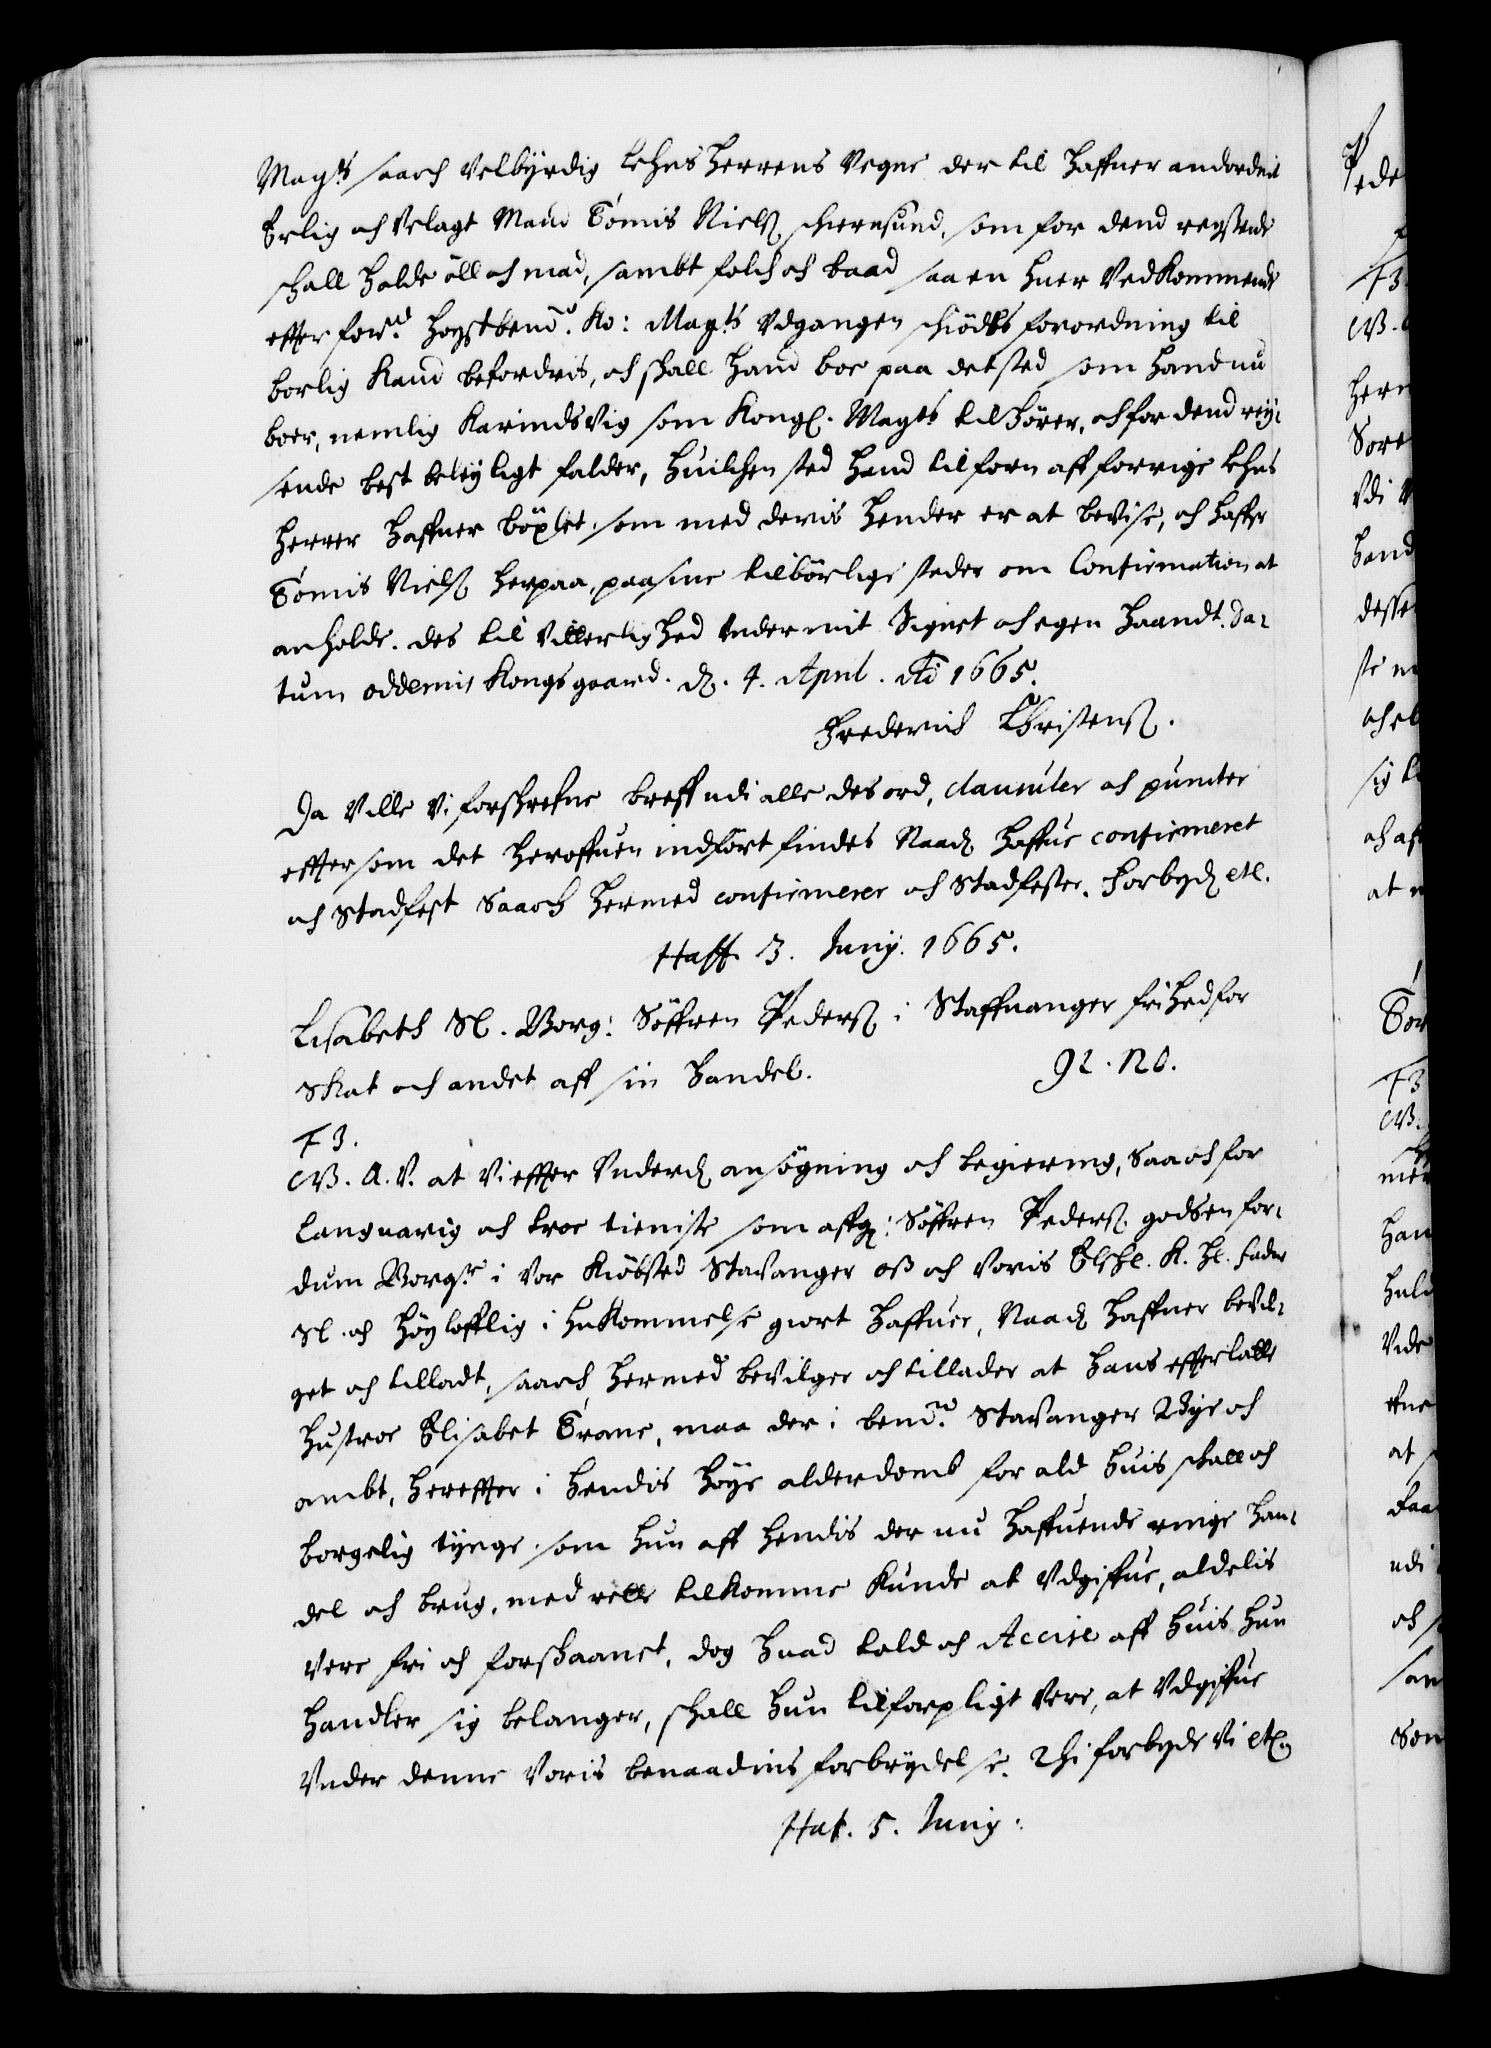 Magts saaoch velbyrdig Lehns Herrens vegne der til haffuer andordnit
Erlig och velagt Mand Tómis Nielß schiernsund, som for dend reysende
schall holde öll och mad, sambt folch och baad saa en huer vedkommende
effter forne høystbemte Ko: Mayts vdgangen schiödts forordning til
borlig kand befordris, och schall hand boe paa det sted som hand nu
boer, nemlig Karindsvig som Kongl. Mayts tilhörer, och for dend rey-
sende best beleyligt falder, huilchen sted hand tilforn aff forrige Lehns
herrer haffuer böxlet som med deris hender er at bevise, och haffr
Tómis Nielß herpaa, paa sine tilbörlige steder om Confirmation at
anholde. des til vitterlighed vnder mit Signet och egen haandt. Da-
tum oddernis Kongsgaard. d. 4. April. Ao 1665.
Frederich Christenß.
Da ville vi forschrefne breff udi alle des ord, clausuler och puncter
effter som det heroffuen indfört findes Naadl haffue confirmeret
och stadfest Saaoch hermed confirmerer och stadfester. Forbydl etc.
Haff 3. Junij. 1665.
Lisabeth Sl. Borg: Söffren Pederß i Staffuanger frihed for
Skat och andet aff sin handel. 92. N0.
F 3.
W. A. V. at vi effter vnderd ansögning och begiering, Saaoch for
languarig och troe tieniste som affg: Söffren Pederß godsen for-
dum Borgr i vor Kiöbsted Stavanger oß och voris Elschl. K. Hl. fader
Sl. och høyloffiig i hukommelse giort haffuer, Naadl haffuer bevil-
get och tilladt, saaoch hermed bevilger och tillader at hans effterlatte
hustroe Elisabet Trane, maa der i bemte Stavanger Bye och
ambt, hereffter i hendis høye alderdomb for ald huis schatt och
borgelig tynge som hun aff hendis der nu haffuende ringe han-
del och brug, med rette tilkomme kunde at vdgiffue, aldelis
vere fri och forschaanet, dog huad told och Accise aff huis hun
handler sig belanger, schall hun tilforpligt vere, at vdgiffue
vnder denne voris benaadnis forbrydelse. Thi forbyde vi etc.
Haf. 5. Junij.